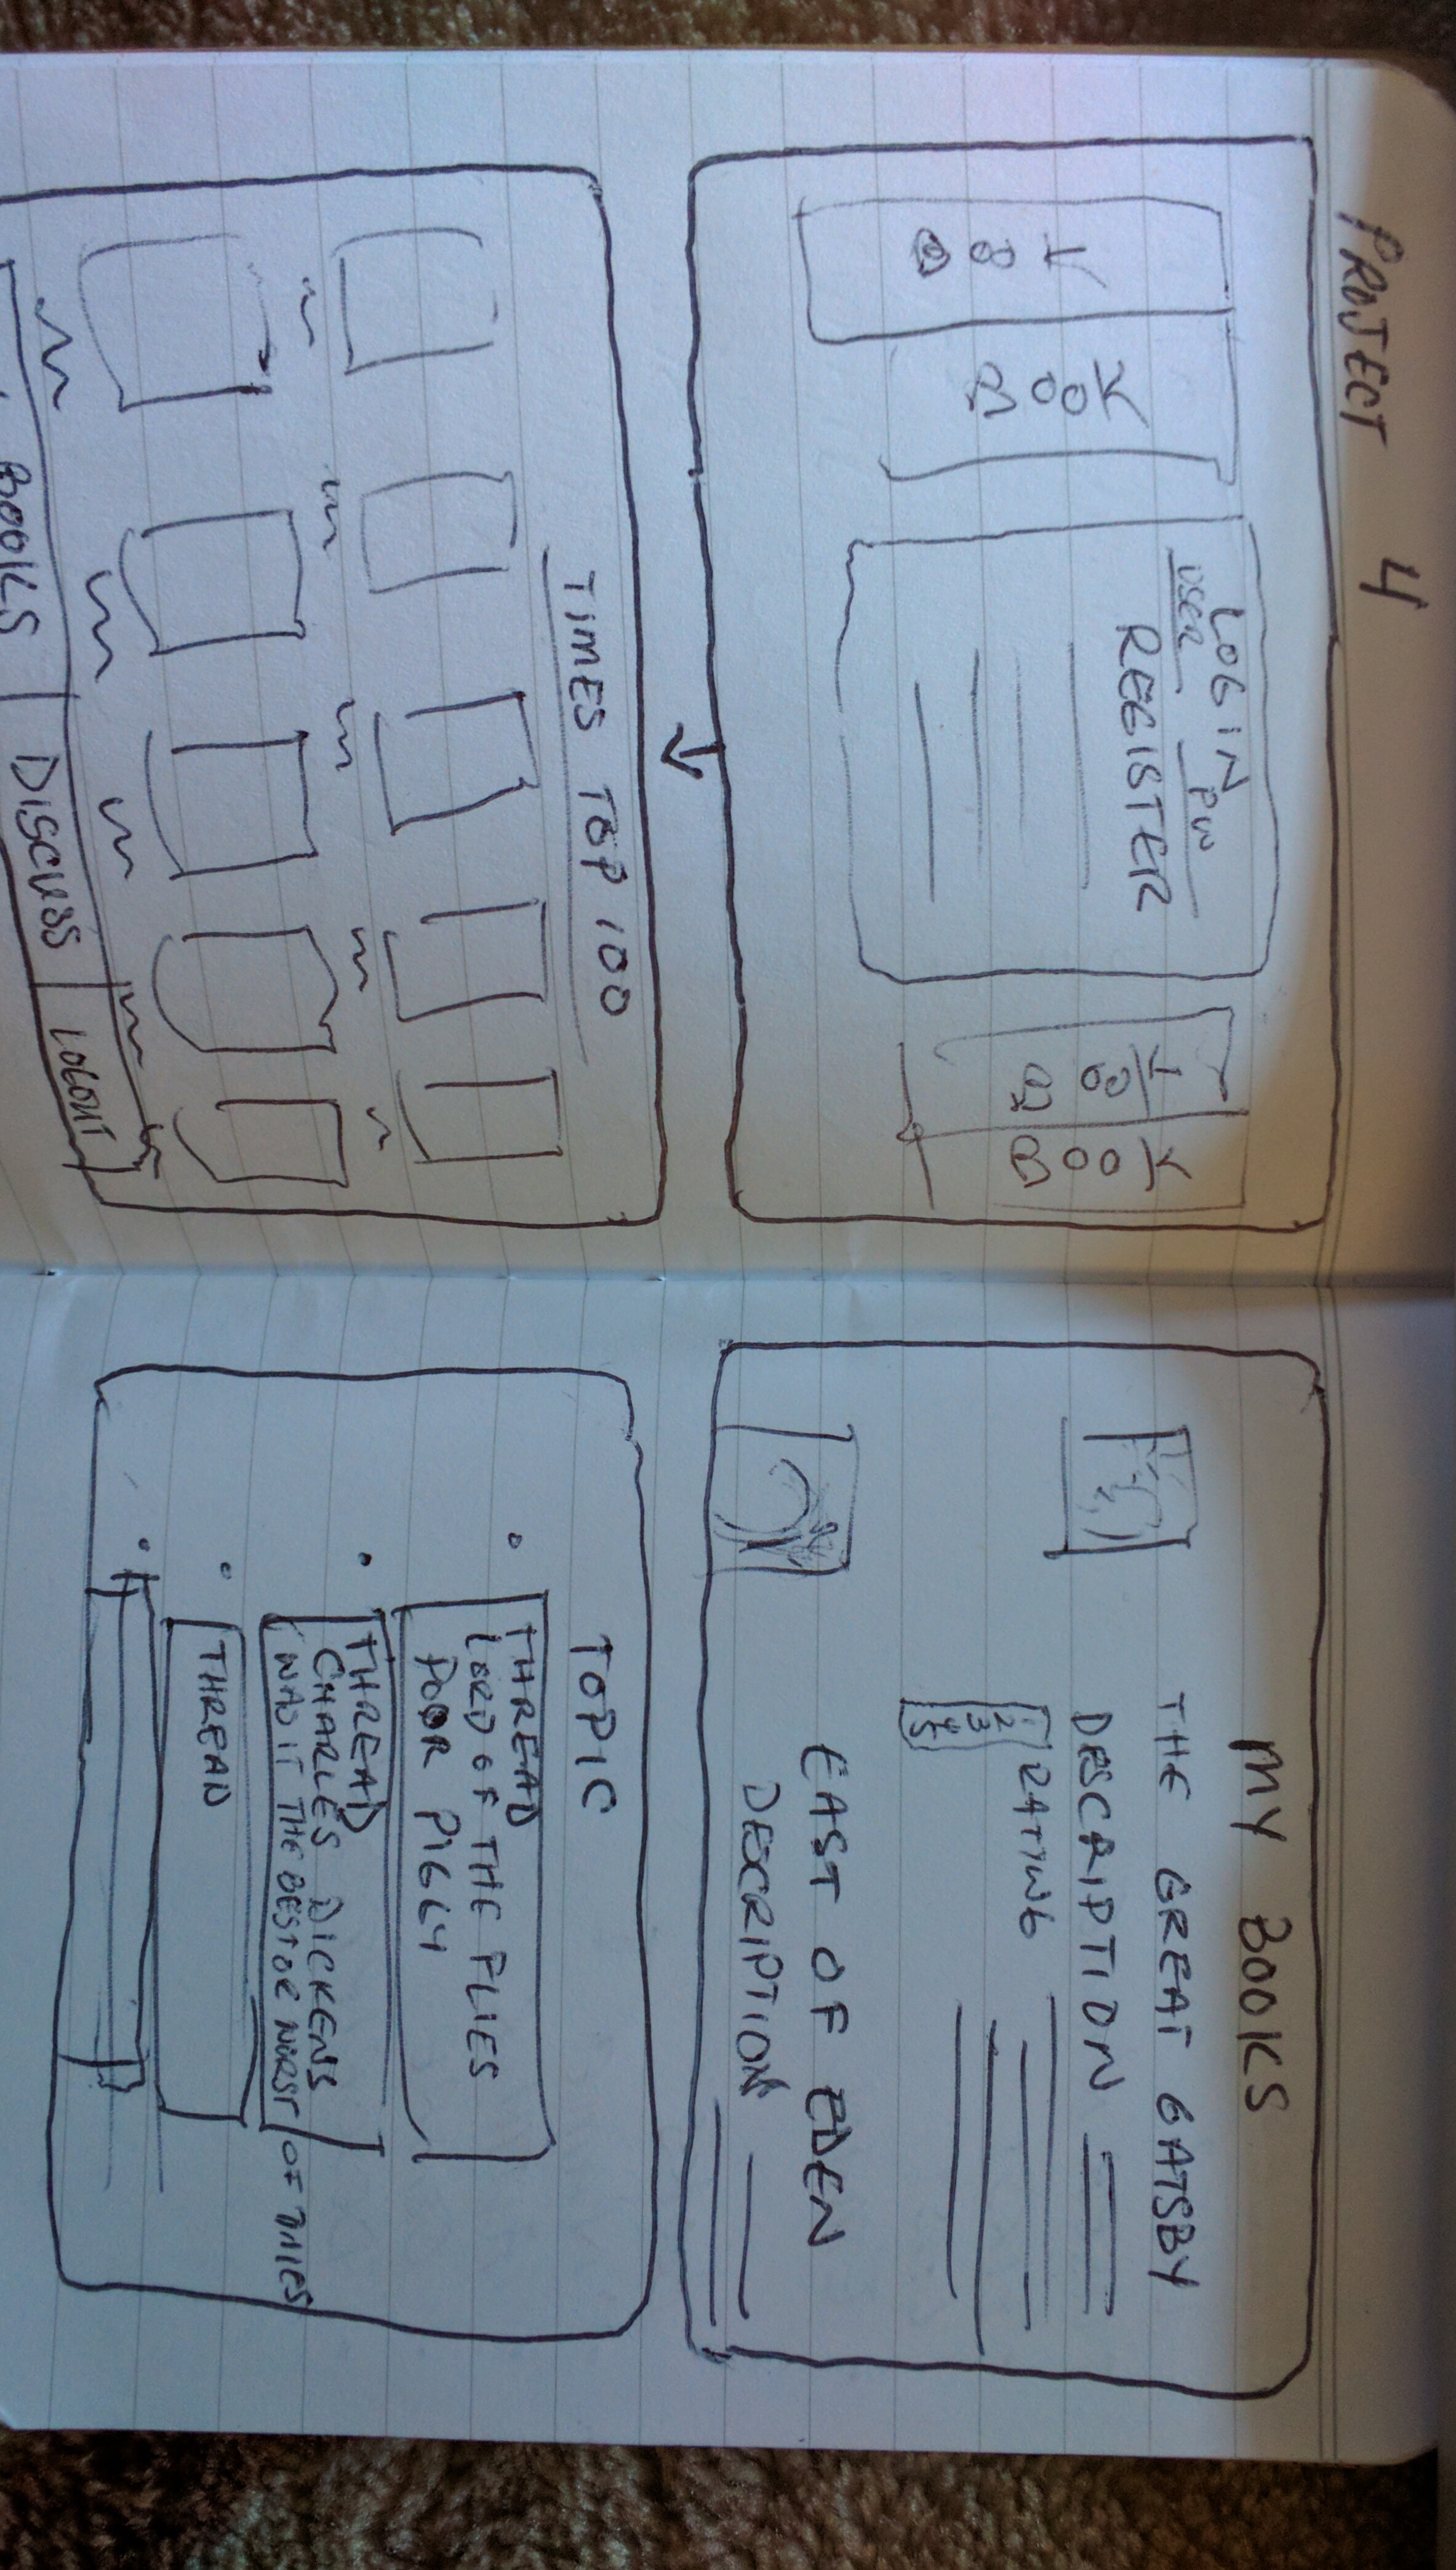 PROJECT 4
BOOK
BOOK
LOGIN
USER PW
REGISTER
BOOK
BOOK
TIMES TOP 100
BOOKS
DISCUSS
LOGOUT
MY BOOKS
THE GREAT GATSBY
DESCRIPTION
RATING
2
3
4
5
EAST OF EDEN
DESCRIPTION
TOPIC
THREAD
LORD OF THE FLIES
POOR PIGLY
THREAD
CHARLES DICKENS
WAS IT THE BEST OR WORST OF TIMES
THREAD